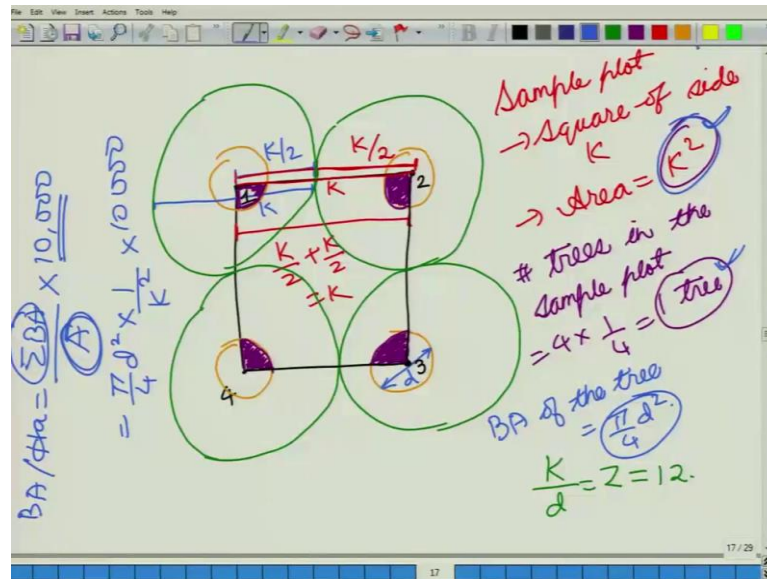 File Edit View Insert Actions Tools Help
Sample plot
→ Square of side
K
→ Area = K²
# trees in the
sample plot
= 4 × 1/4 = 1 tree
BA of the tree
= π/4 d².
K/d = Z = 12.
K/2
K/2
K
K
K/2 + K/2
= K
1
2
3
4
d
BA/Ha = ΣBA/A × 10,000
= π/4 d² × 1/K² × 10000
17 / 29
17